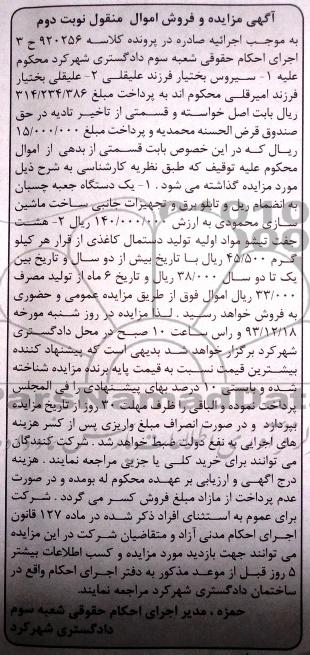 آگهی مزایده و فروش اموال منقول نوبت دوم
به موجب اجرائیه صادره در پرونده کلاسه ۹۲۰۲۵۶ ح ۳
اجرای احکام حقوقی شعبه سوم دادگستری شهرکرد محکوم
علیه ۱- سیروس بختیار فرزند علیقلی ۲- علیقلی بختیار
فرزند امیرقلی محکوم اند به پرداخت مبلغ ۳۱۴/۲۳۴/۳۸۶
ریال بابت اصل خواسته و قسمتی از تاخیر تادیه در حق
صندوق قرض الحسنه محمدیه و پرداخت مبلغ ۱۵/۰۰۰/۰۰۰
ریال که در این خصوص بابت قسمتی از بدهی از اموال
محکوم علیه توقیف که طبق نظریه کارشناسی به شرح ذیل
مورد مزایده گذاشته می شود . ۱- یک دستگاه جعبه چسبان
به انضمام ریل و تابلو برق و تجهیزات جانبی ساخت ماشین
سازی محمودی به ارزش ۱۴۰/۰۰۰/۰۰۰ ریال ۲- هشت
جفت تیشو مواد اولیه تولید دستمال کاغذی از قرار هر کیلو
گرم ۴۵/۵۰۰ ریال با تاریخ بیش از دو سال و تاریخ بین
یک تا دو سال ۳۸/۰۰۰ ریال و تاریخ ۶ ماه از تولید مصرف
۳۳/۰۰۰ ریال اموال فوق از طریق مزایده عمومی و حضوری
به فروش خواهد رسید . لذا مزایده در روز شنبه مورخه
۹۳/۱۲/۱۸ و راس ساعت ۱۰ صبح در محل دادگستری
شهرکرد برگزار خواهد شد بدیهی است که پیشنهاد کننده
بیشترین قیمت نسبت به قیمت پایه برنده مزایده شناخته
شده و بایستی ۱۰ درصد بهای پیشنهادی را فی المجلس
پرداخت نموده و الباقی را ظرف مهلت ۳۰ روز از تاریخ مزایده
بپردازد و در صورت انصراف مبلغ واریزی پس از کسر هزینه
های اجرایی به نفع دولت ضبط خواهد شد . شرکت کنندگان
می توانند برای خرید کلی یا جزیی مراجعه نمایند . هزینه
درج آگهی و ارزیابی بر عهده محکوم له بوده و در صورت
عدم پرداخت از مازاد مبلغ فروش کسر می گردد . شرکت
برای عموم به استثنای افراد ذکر شده در ماده ۱۲۷ قانون
اجرای احکام مدنی آزاد و متقاضیان شرکت در این مزایده
می توانند جهت بازدید مورد مزایده و کسب اطلاعات بیشتر
۵ روز قبل از موعد مذکور به دفتر اجرای احکام واقع در
ساختمان دادگستری شهرکرد مراجعه نمایند.
حمزه ، مدیر اجرای احکام حقوقی شعبه سوم
دادگستری شهرکرد